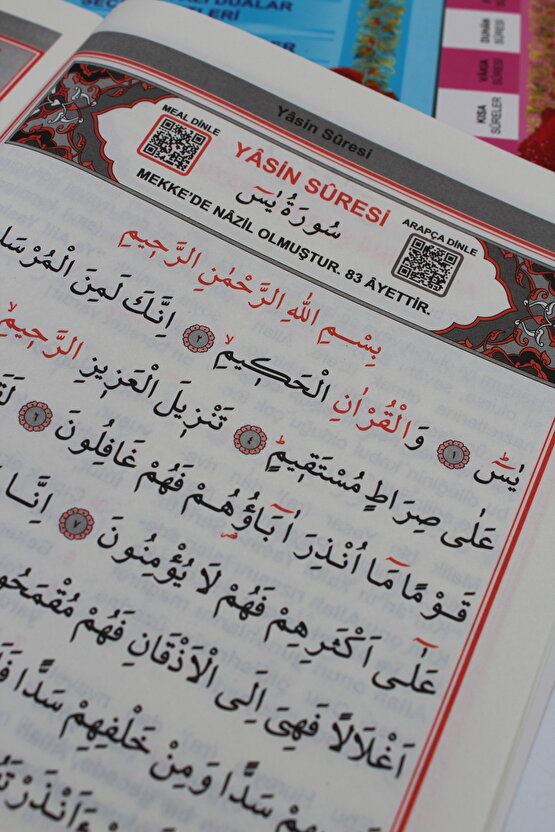 DUALAR
DUHÂN
SÛRESİ
VÂKIA
SÛRESİ
KISA
SÛRELER
Yâsin Sûresi
MEAL DİNLE
YÂSİN SÛRESİ
سُورَةُ يٰسٓ
ARAPÇA DİNLE
MEKKE'DE NÂZİL OLMUŞTUR. 83 ÂYETTİR.
بِسْمِ اللّٰهِ الرَّحْمٰنِ الرَّحِيمِ
يٰسٓ ﴿١﴾ وَالْقُرْاٰنِ الْحَكِيمِۙ ﴿٢﴾ اِنَّكَ لَمِنَ
عَلٰى صِرَاطٍ مُسْتَقِيمٍۜ ﴿٤﴾ تَنْزِيلَ الْعَزِيزِ الرَّحِيمِۙ
قَوْمًا مَٓا اُنْذِرَ اٰبَٓاؤُ۬هُمْ فَهُمْ غَافِلُونَ ﴿٦﴾
عَلٰٓى اَكْثَرِهِمْ فَهُمْ لَا يُؤْمِنُونَ ﴿٧﴾ اِنَّا
اَغْلَالًا فَهِيَ اِلَى الْاَذْقَانِ فَهُمْ
سَدًّا وَمِنْ خَلْفِهِمْ سَدًّا